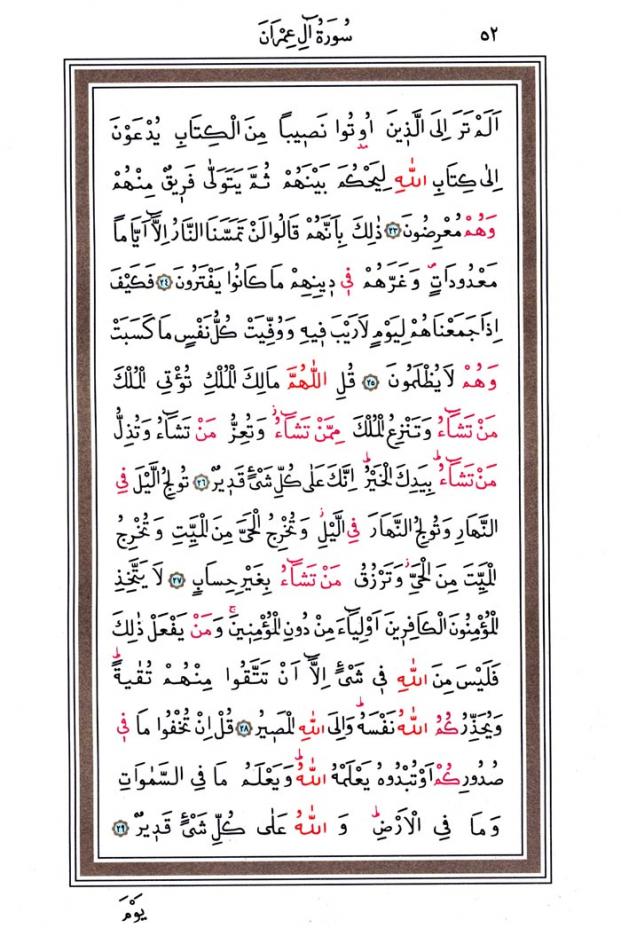 ٥٢ سُورَةُ اٰلِ عِمْرٰانَ
اَلَمْ تَرَ اِلَى الَّذ۪ينَ اُو۫تُوا نَص۪يباً مِنَ الْكِتَابِ يُدْعَوْنَ
اِلٰى كِتَابِ اللّٰهِ لِيَحْكُمَ بَيْنَهُمْ ثُمَّ يَتَوَلّٰى فَر۪يقٌ مِنْهُمْ
وَهُمْ مُعْرِضُونَ ﴿٢٣﴾ ذٰلِكَ بِاَنَّهُمْ قَالُوا لَنْ تَمَسَّنَا النَّارُ اِلَّٓا اَيَّاماً
مَعْدُودَاتٍۖ وَغَرَّهُمْ ف۪ي د۪ينِهِمْ مَا كَانُوا يَفْتَرُونَ ﴿٢٤﴾ فَكَيْفَ
اِذَا جَمَعْنَاهُمْ لِيَوْمٍ لَا رَيْبَ ف۪يهِ وَوُفِّيَتْ كُلُّ نَفْسٍ مَا كَسَبَتْ
وَهُمْ لَا يُظْلَمُونَ ﴿٢٥﴾ قُلِ اللّٰهُمَّ مَالِكَ الْمُلْكِ تُؤْتِي الْمُلْكَ
مَنْ تَشَٓاءُ وَتَنْزِعُ الْمُلْكَ مِمَّنْ تَشَٓاءُۘ وَتُعِزُّ مَنْ تَشَٓاءُ وَتُذِلُّ
مَنْ تَشَٓاءُۜ بِيَدِكَ الْخَيْرُۜ اِنَّكَ عَلٰى كُلِّ شَيْءٍ قَد۪يرٌ ﴿٢٦﴾ تُولِجُ الَّيْلَ فِي
النَّهَارِ وَتُولِجُ النَّهَارَ فِي الَّيْلِۘ وَتُخْرِجُ الْحَيَّ مِنَ الْمَيِّتِ وَتُخْرِجُ
الْمَيِّتَ مِنَ الْحَيِّۘ وَتَرْزُقُ مَنْ تَشَٓاءُ بِغَيْرِ حِسَابٍ ﴿٢٧﴾ لَا يَتَّخِذِ
الْمُؤْمِنُونَ الْكَافِر۪ينَ اَوْلِيَٓاءَ مِنْ دُونِ الْمُؤْمِن۪ينَۚ وَمَنْ يَفْعَلْ ذٰلِكَ
فَلَيْسَ مِنَ اللّٰهِ ف۪ي شَيْءٍ اِلَّٓا اَنْ تَتَّقُوا مِنْهُمْ تُقٰيةًۜ
وَيُحَذِّرُكُمُ اللّٰهُ نَفْسَهُۜ وَاِلَى اللّٰهِ الْمَص۪يرُ ﴿٢٨﴾ قُلْ اِنْ تُخْفُوا مَا ف۪ي
صُدُورِكُمْ اَوْ تُبْدُوهُ يَعْلَمْهُ اللّٰهُۜ وَيَعْلَمُ مَا فِي السَّمٰوَاتِ
وَمَا فِي الْاَرْضِۜ وَاللّٰهُ عَلٰى كُلِّ شَيْءٍ قَد۪يرٌ ﴿٢٩﴾
يَوْمَ